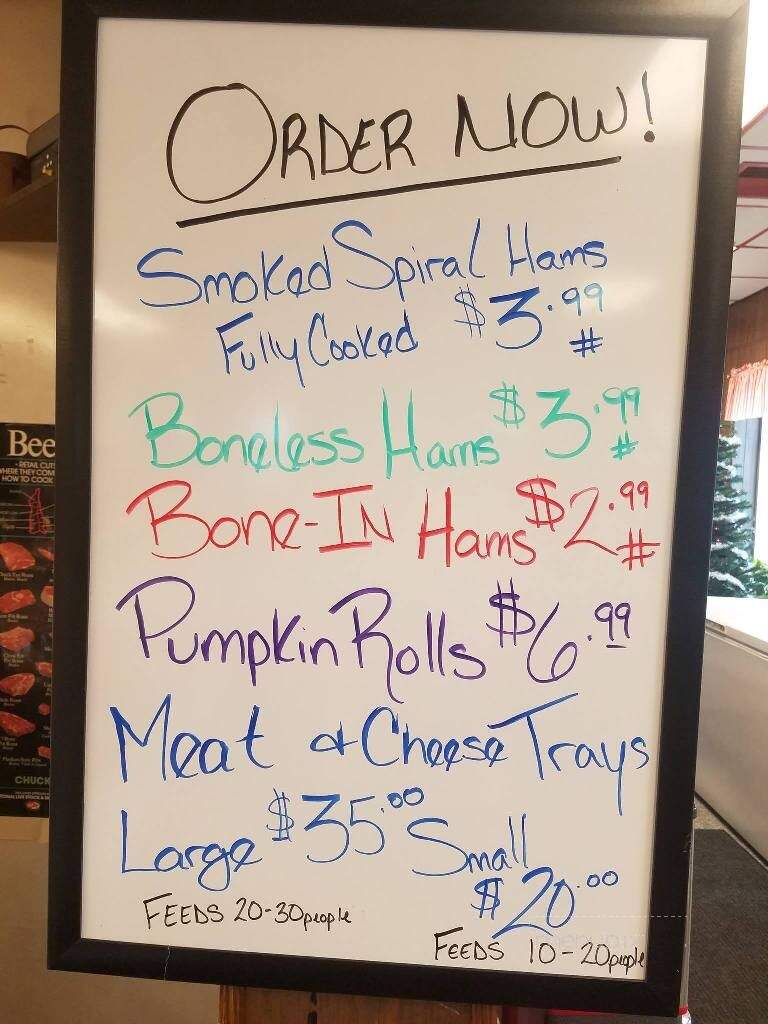 ORDER NOW!
Smoked Spiral Hams
Fully Cooked $3.99 #
Boneless Hams $3.99 #
Bone-IN Hams $2.99 #
Pumpkin Rolls $6.99
Meat & Cheese Trays
Large $35.00 Small
$20.00
FEEDS 20-30people
FEEDS 10-20people
Bee
RETAIL CUTS
WHERE THEY COM
HOW TO COOK
CHUCK